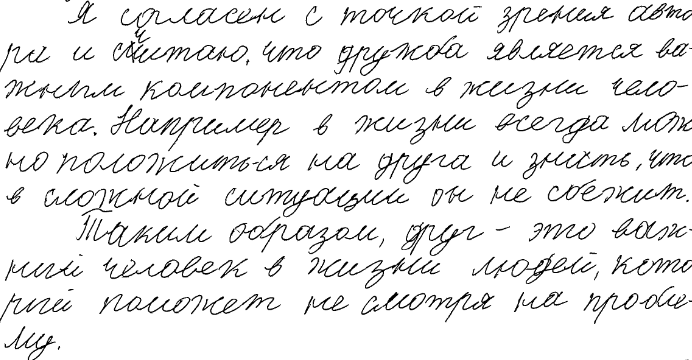 Я согласен с точкой зрения авто
ра и считаю, что дружба является ва-
жным компонентом в жизни чело-
века. Например в жизни всегда мож
но положиться на друга и знать, что
в сложной ситуации он не сбежит.
Таким образом, друг - это важ-
ный человек в жизни людей, кото
рый поможет не смотря на пробле-
му.